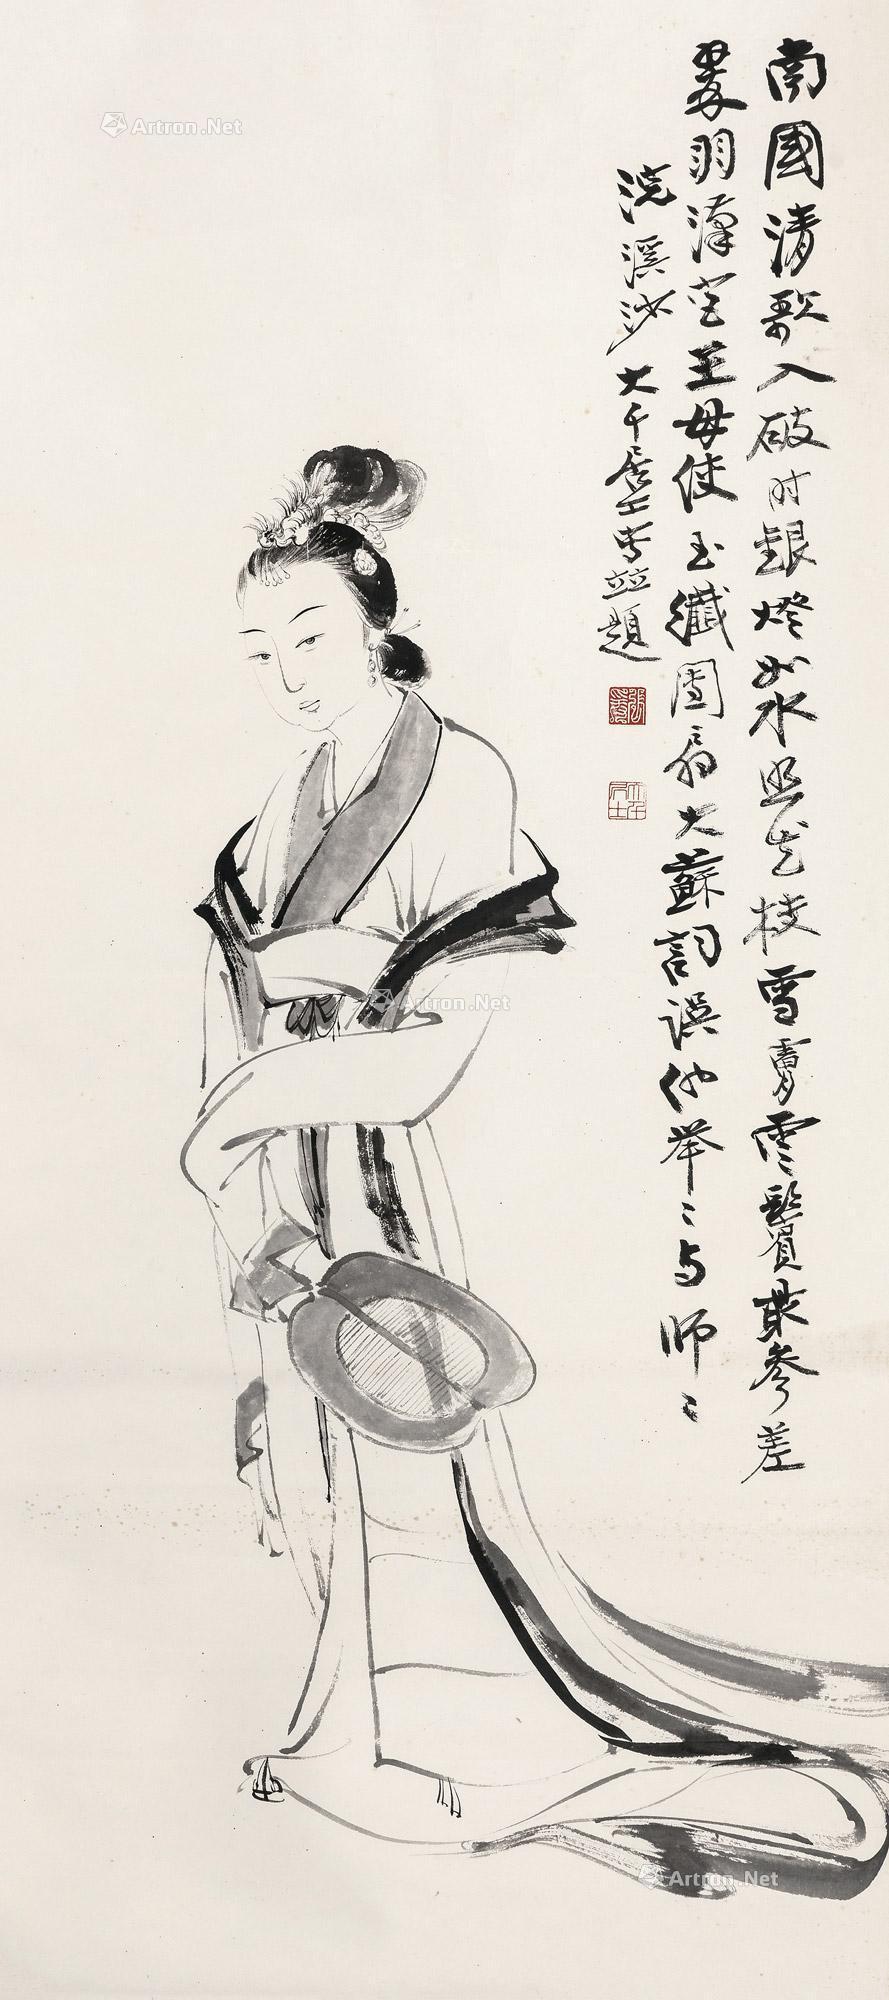 南國清歌入破時銀燈如水照花枝雪膚雲鬢最參差
翠羽漢宮王母使玉纖團扇大蘇詞誤他舉〻与師〻
浣溪沙 大千居士書並題
張爰
大千居士
Artron.Net
Artron.Net
Artron.Net